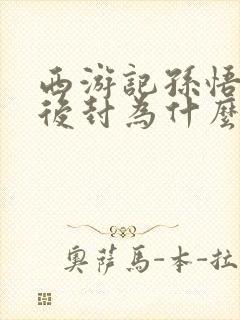 西游記孫悟
後封為什麼
奧薩馬-本-拉